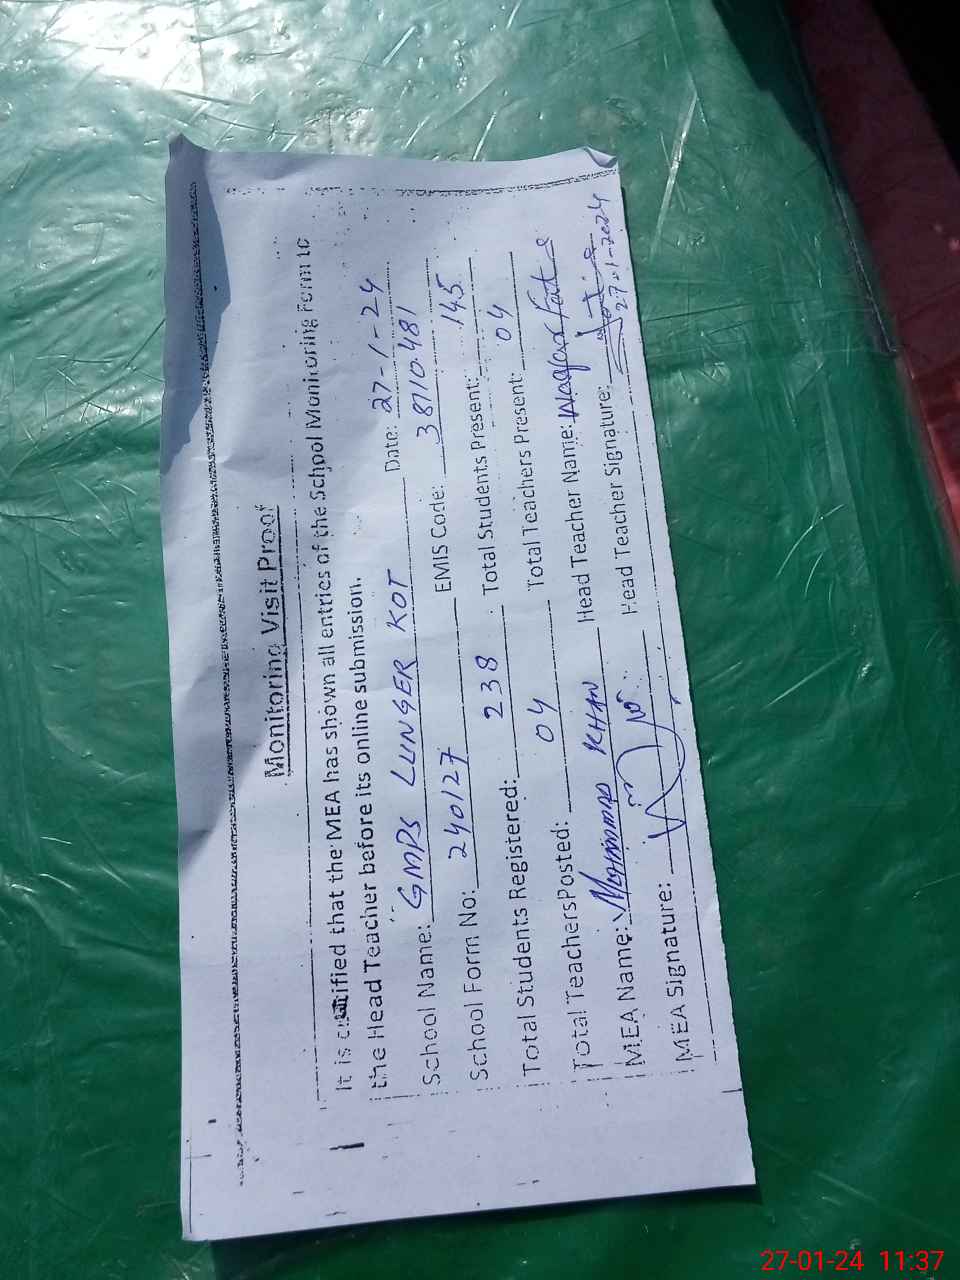 Monitoring Visit Proof
It is certified that the MEA has shown all entries of the School Monitoring Form to
the Head Teacher before its online submission.
School Name: GMPS LUNGER KOT Date: 27-1-24
School Form No: 240127 EMIS Code: 38110481
Total Students Registered: 238 Total Students Present: 145
Total Teachers Posted: 04 Total Teachers Present: 04
MEA Name: MOHAMMAD KHAN Head Teacher Name:
MEA Signature: Head Teacher Signature:
27-1-2024
27-01-24 11:37